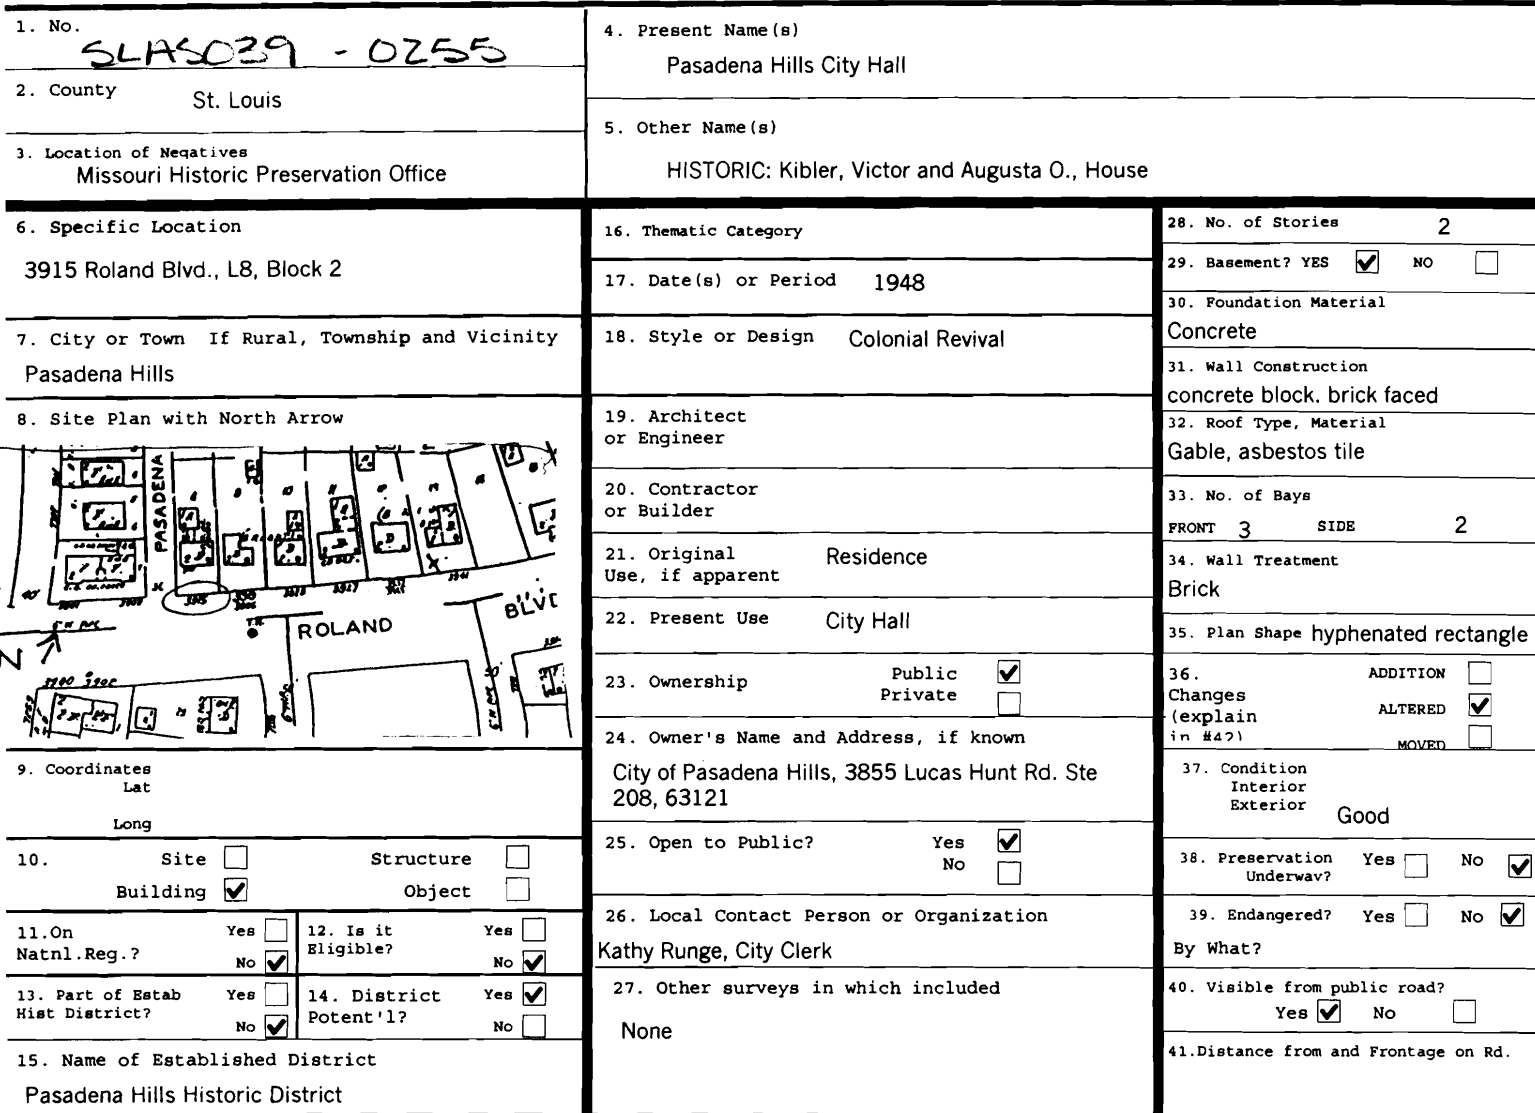 1. No.
SLAS039 - 0255
2. County
St. Louis
3. Location of Negatives
Missouri Historic Preservation Office
4. Present Name(s)
Pasadena Hills City Hall
5. Other Name(s)
HISTORIC: Kibler, Victor and Augusta O., House
6. Specific Location
3915 Roland Blvd., L8, Block 2
7. City or Town If Rural, Township and Vicinity
Pasadena Hills
8. Site Plan with North Arrow
PASADENA
3915
ROLAND
BLVD
N
9. Coordinates
Lat
Long
10. Site Structure
Building Object
11.On Yes
Natnl.Reg.? No
12. Is it Yes
Eligible? No
13. Part of Estab Yes
Hist District? No
14. District Yes
Potent'l? No
15. Name of Established District
Pasadena Hills Historic District
16. Thematic Category
17. Date(s) or Period 1948
18. Style or Design Colonial Revival
19. Architect
or Engineer
20. Contractor
or Builder
21. Original Residence
Use, if apparent
22. Present Use City Hall
23. Ownership Public
Private
24. Owner's Name and Address, if known
City of Pasadena Hills, 3855 Lucas Hunt Rd. Ste
208, 63121
25. Open to Public? Yes
No
26. Local Contact Person or Organization
Kathy Runge, City Clerk
27. Other surveys in which included
None
28. No. of Stories 2
29. Basement? YES NO
30. Foundation Material
Concrete
31. Wall Construction
concrete block. brick faced
32. Roof Type, Material
Gable, asbestos tile
33. No. of Bays
FRONT 3 SIDE 2
34. Wall Treatment
Brick
35. Plan Shape hyphenated rectangle
36. ADDITION
Changes
(explain ALTERED
in #42) MOVED
37. Condition
Interior
Exterior Good
38. Preservation Yes No
Underway?
39. Endangered? Yes No
By What?
40. Visible from public road?
Yes No
41.Distance from and Frontage on Rd.